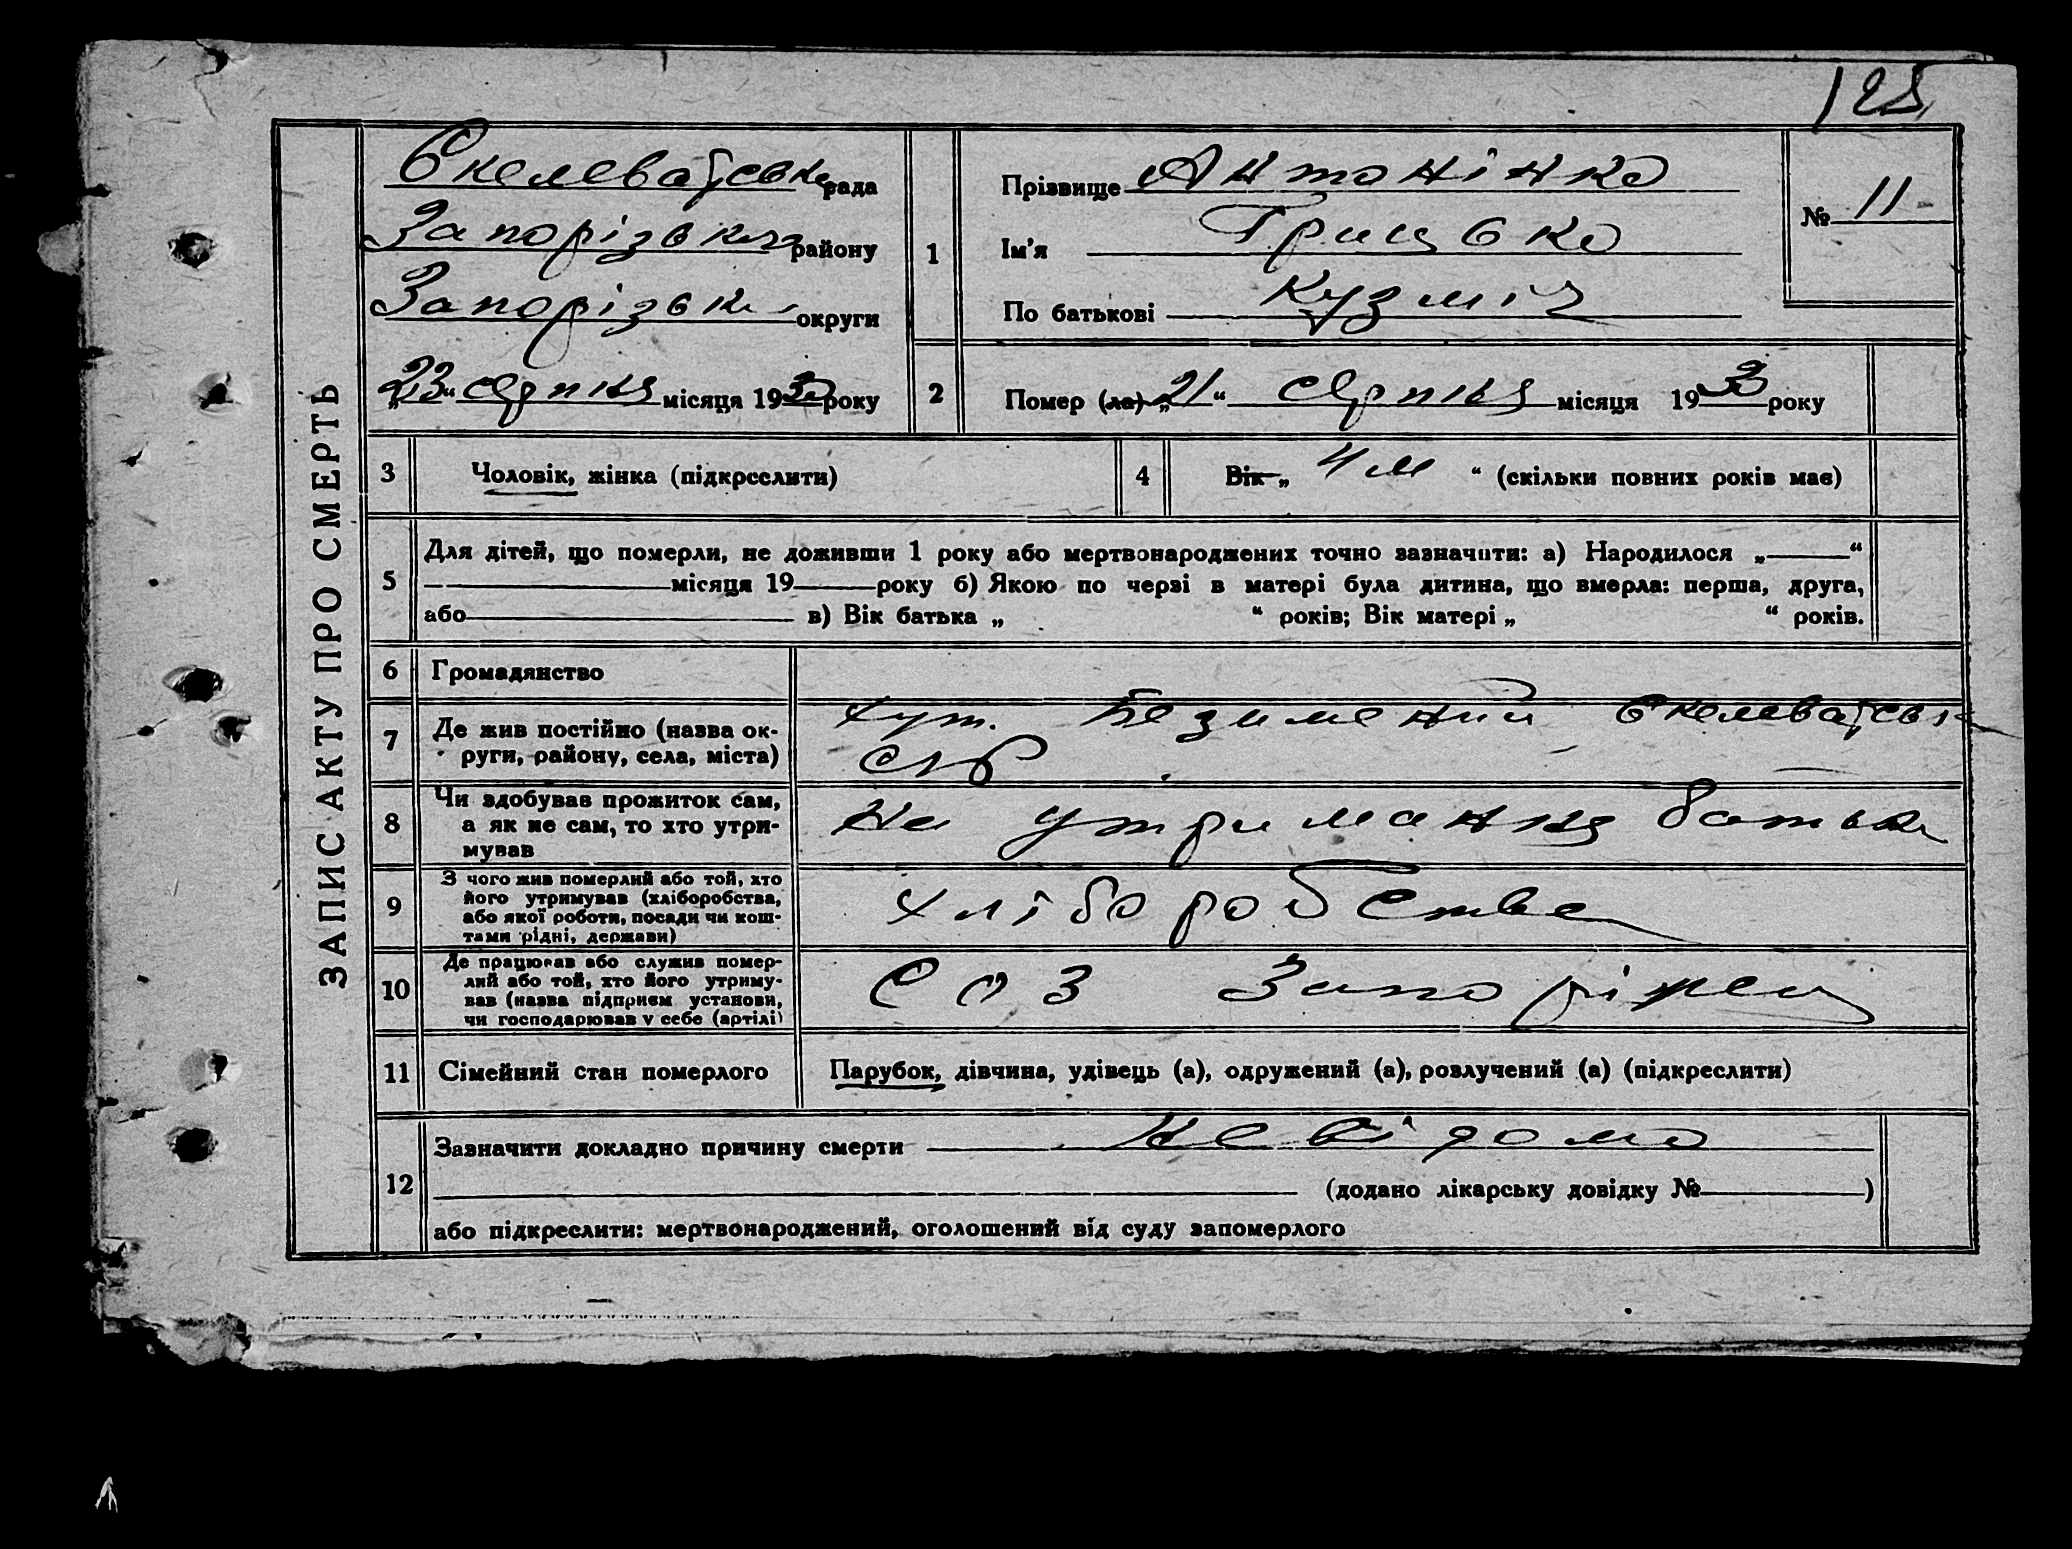 125
ЗАПИС АКТУ ПРО СМЕРТЬ
Скелеватська рада
Запорізького району
Запорізьк округи
„23“ серпня місяця 1930 року
1
Прізвище Антонінко
Ім'я Грицько
По батькові Кузміч
№ 11
2
Помер (ла) „21“ серпня місяця 1930 року
3 Чоловік, жінка (підкреслити)
4 Вік „ 4 м “ (скільки повних років має)
5 Для дітей, що померли, не доживши 1 року або мертвонароджених точно зазначити: а) Народилося „ “
місяця 19 року б) Якою по черзі в матері була дитина, що вмерла: перша, друга,
або в) Вік батька „ “ років; Вік матері „ “ років.
6 Громадянство
7 Де жив постійно (назва ок-
руги, району, села, міста)
хут. Безименний Скелеватськ
с/р
8 Чи здобував прожиток сам,
а як не сам, то хто утри-
мував
На утримання батька
9 З чого жив померлий або той, хто
його утримував (хліборобства,
або якої роботи, посади чи кош-
тами рідні, держави)
хліборобства
10 Де працював або служив помер-
лий або той, хто його утриму-
вав (назва підприєм установи,
чи господарював у себе (артілі)
СОЗ Запоріжец
11 Сімейний стан померлого
Парубок, дівчина, удівець (а), одружений (а), розлучений (а) (підкреслити)
12 Зазначити докладно причину смерти невідомо
(додано лікарську довідку № )
або підкреслити: мертвонароджений, оголошений від суду запомерлого